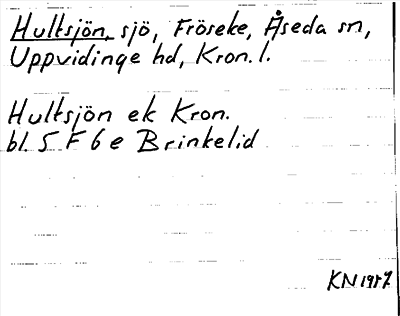 Hultsjön, sjö, Fröseke, Åseda sn,
Uppvidinge hd, Kron. l.
Hultsjön ek Kron.
bl. 5 F 6 e Brinkelid
KN 1987